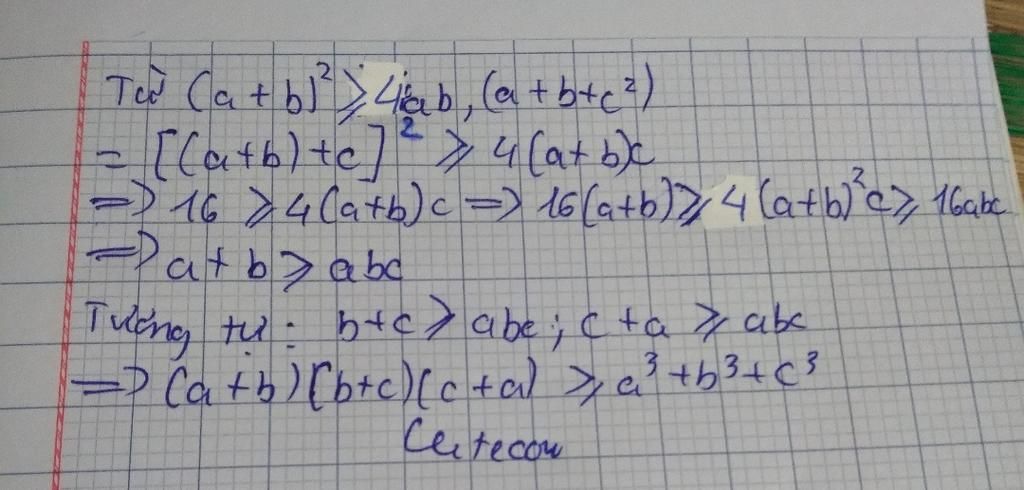 Từ (a + b)² ⩾ 4ab, (a + b + c²)
= [(a+b) + c]² ⩾ 4(a+b)c
=> 16 ⩾ 4(a+b)c => 16(a+b) ⩾ 4(a+b)²c ⩾ 16abc
=> a + b ⩾ abc
Tương tự : b+c ⩾ abc ; c + a ⩾ abc
=> (a + b)(b+c)(c + a) ⩾ a³ + b³ + c³